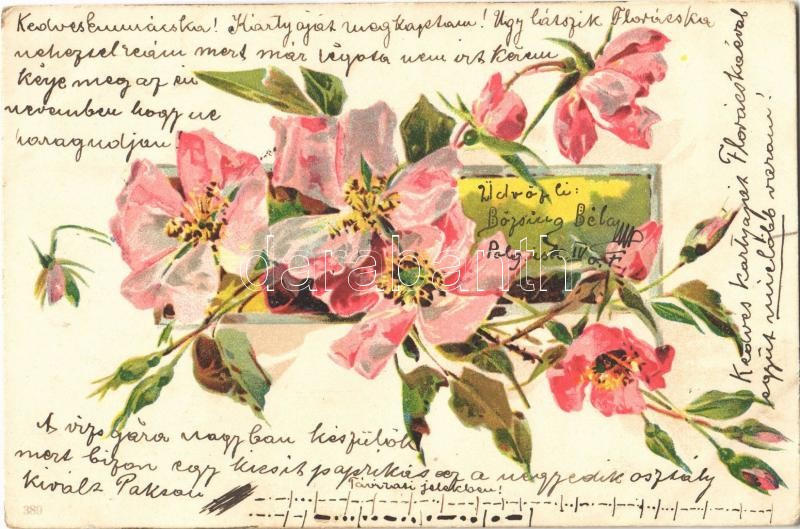 Kedves Emmácska! Kártyáját megkaptam! Úgy látszik Florácska
neheztel reám mert már régóta nem írt kérem
kérje meg az én
nevemben hogy ne
haragudjon!
Üdvözli:
Bözsing Béla
Polg. isk. IV. o. t.
Kedves kártyáját Florácskáéval
együt mielőbb várom!
A vizsgára nagyban készülök
mert bizon egy kicsit paprikás ez a negyedik osztály
kivált Pakson
Távirási jelekben!
389
darabanth